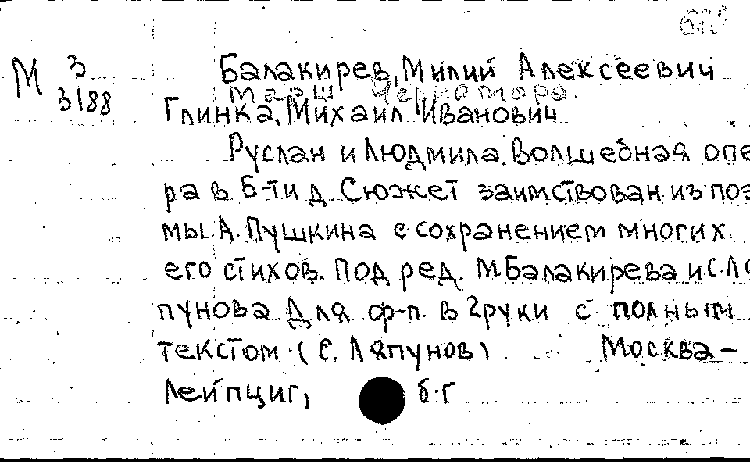 М 3
3188
Балакирев, Милий Алексеевич
Марш Черномора.
Глинка, Михаил Иванович
Руслан и Людмила. Волшебная опе
ра в 5-ти д. Сюжет заимствован из поэ
мы А. Пушкина с сохранением многих
его стихов. Под ред. М.Балакирева и С.Ля
пунова Для ф-п. в 2 руки с полным
текстом (С. Ляпунов) Москва –
Лейпциг, б.г